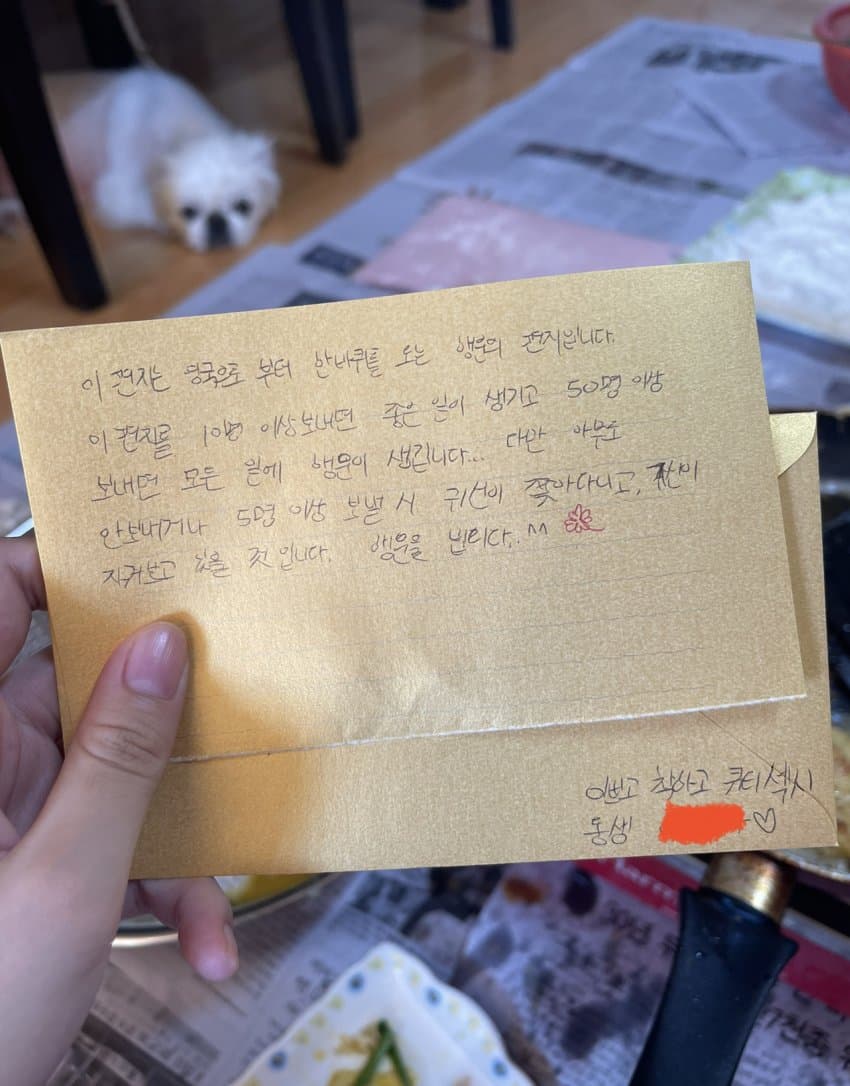 이 편지는 영국으로 부터 한바퀴를 도는 행운의 편지입니다.
이 편지를 10명 이상보내면 좋은 일이 생기고 50명 이상
보내면 모든 일에 행운이 생긴니다... 다만 아무도
안보내거나 5명 이상 보낼 시 귀신이 쫓아다니고,
지켜보고 있을 것 입니다. 행운을 빕니다.. ^^
이쁘고 착하고 큐티섹시
동생